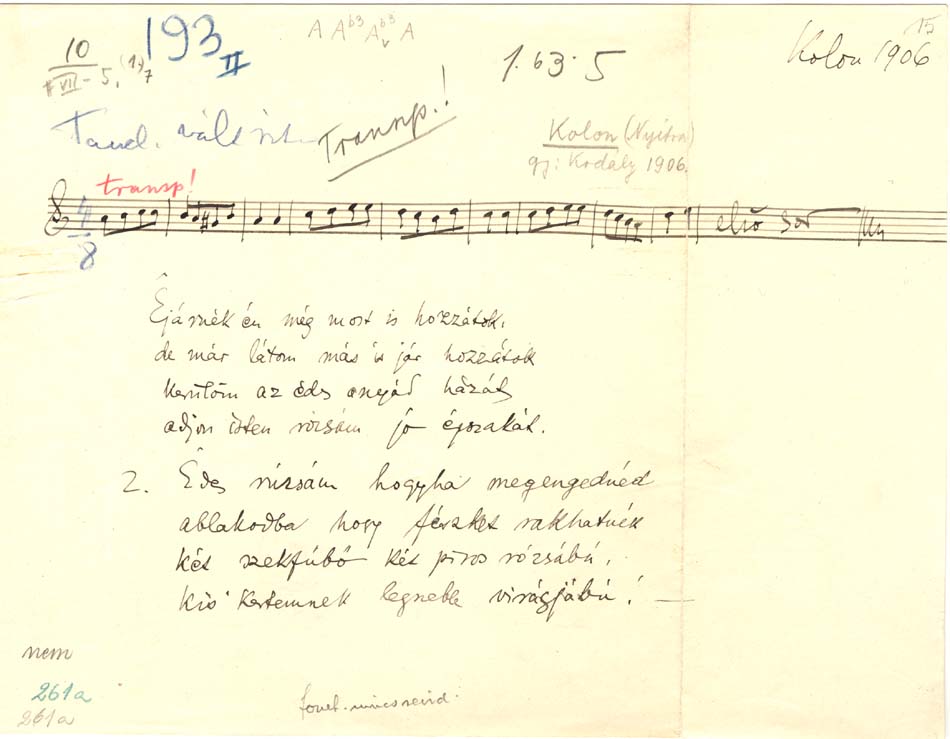 15
A A♭3 A♭3v A
10
193
II
VII - 5, (1), 7
1. b3. 5
Kolon 1906
Transp.!
Kolon (Nyitra)
gj: Kodály 1906.
transp!
4
8
első sor
Ejárnék én még most is hozzátok,
de már látom más is jár hozzátok
kerűlöm az édes anyád házát
adjon isten rózsám jó éjszakát.
2. Édes rózsám hogyha megengednéd
ablakodba hogy fészket rakhatnék
két szekfűbő két piros rózsábú,
kis kertemnek legszebb virágjábú!
nem
261a
261a